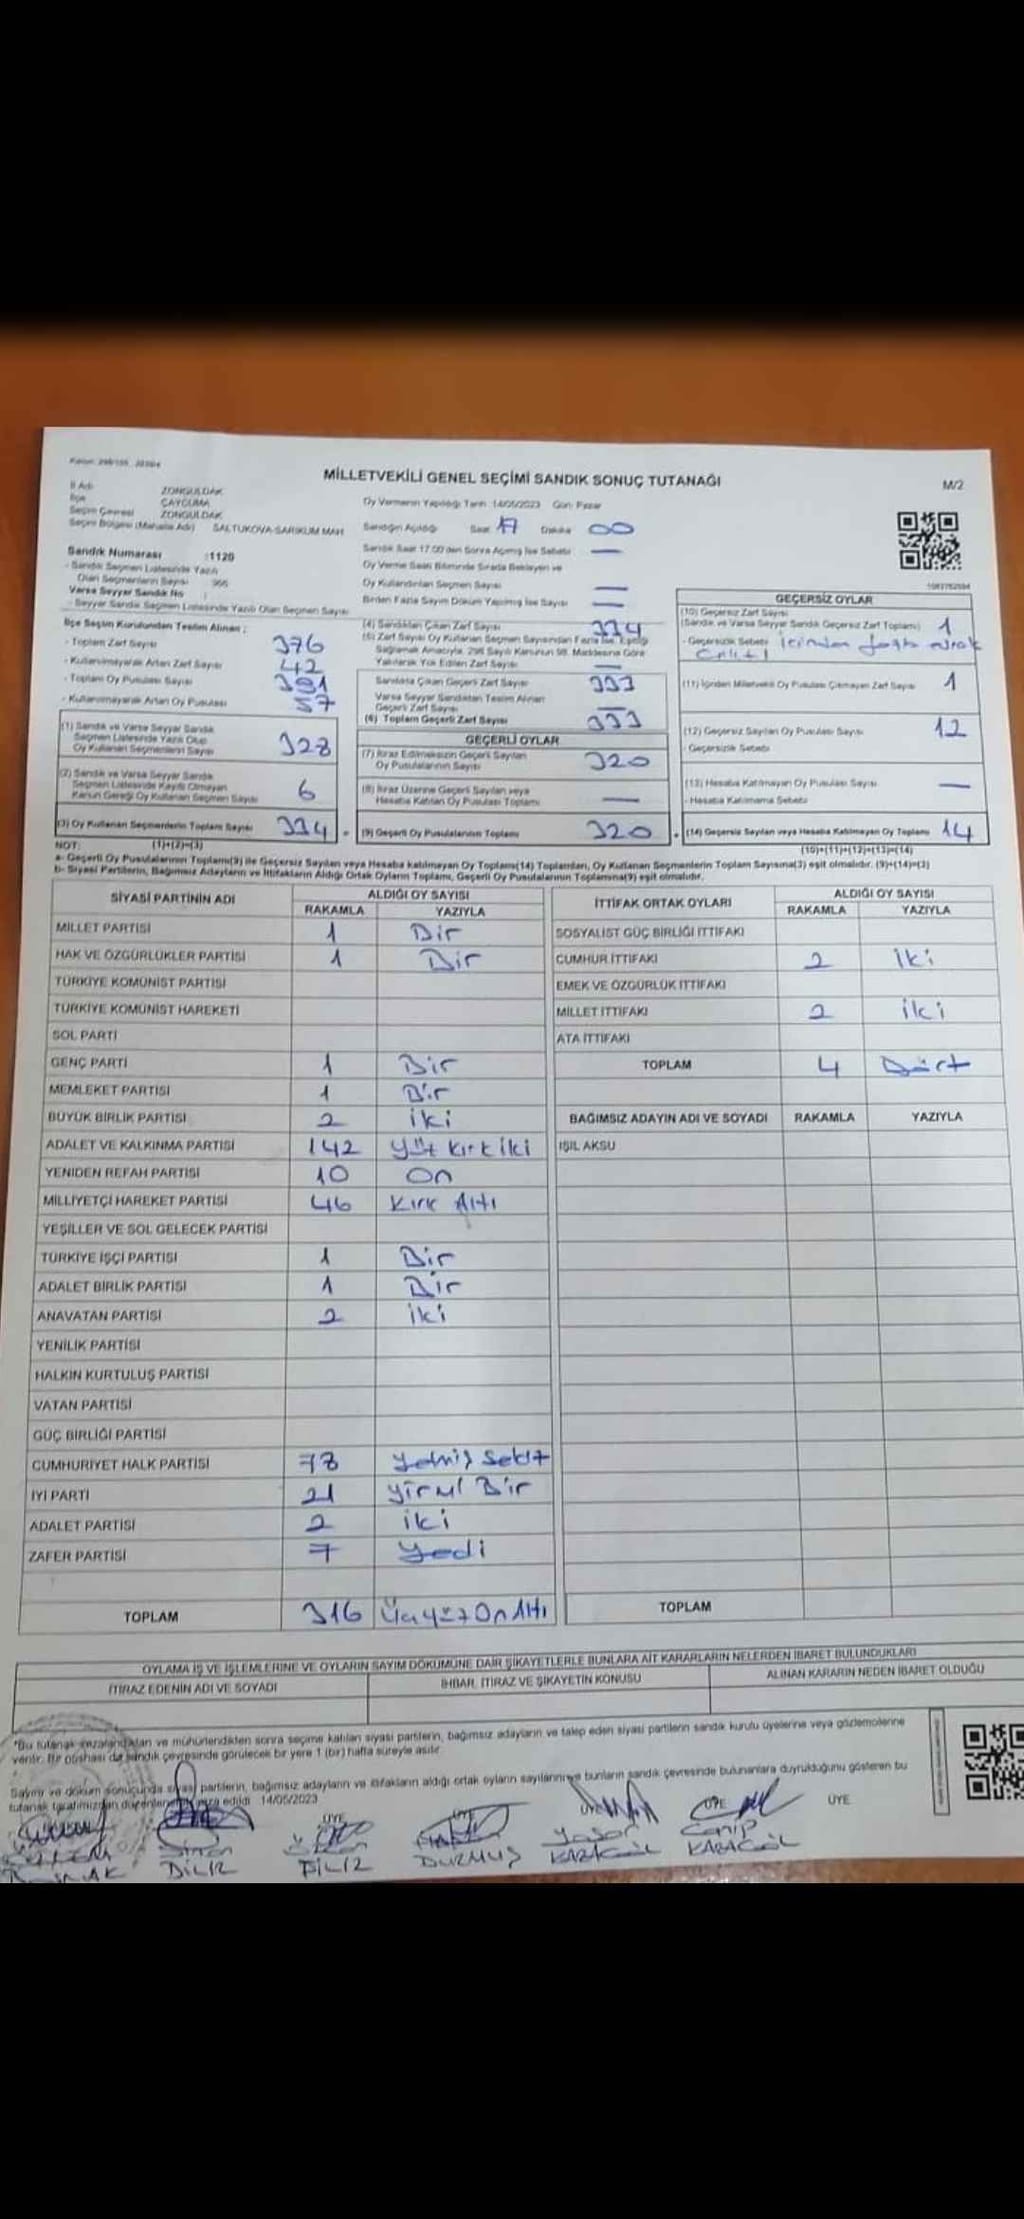 MİLLETVEKİLİ GENEL SEÇİMİ SANDIK SONUÇ TUTANAĞI
M/2
İl Adı ZONGULDAK
İlçe ÇAYCUMA
Seçim Çevresi ZONGULDAK
Seçim Bölgesi (Mahalle Adı) SALTUKOVA-SARIKUM MAH
Oy Vermenin Yapıldığı Tarih :14/05/2023 Gün: Pazar
Sandığın Açıldığı Saat 17 Dakika 00
Sandık Saat 17:00'den Sonra Açılmış İse Sebebi —
Oy Verme Saati Bitiminde Sırada Bekleyen ve
Oy Kullandırılan Seçmen Sayısı —
Birden Fazla Sayım Döküm Yapılmış İse Sayısı —
Sandık Numarası :1120
- Sandık Seçmen Listesinde Yazılı
Olan Seçmenlerin Sayısı
Varsa Seyyar Sandık No :
- Seyyar Sandık Seçmen Listesinde Yazılı Olan Seçmen Sayısı
İlçe Seçim Kurulundan Teslim Alınan ;
- Toplam Zarf Sayısı 376
- Kullanılmayarak Artan Zarf Sayısı 42
- Toplam Oy Pusulası Sayısı 391
- Kullanılmayarak Artan Oy Pusulası 57
(1) Sandık ve Varsa Seyyar Sandık
Seçmen Listesinde Yazılı Olup
Oy Kullanan Seçmenlerin Sayısı 328
(2) Sandık ve Varsa Seyyar Sandık
Seçmen Listesinde Kayıtlı Olmayan
Kanun Gereği Oy Kullanan Seçmen Sayısı 6
(3) Oy Kullanan Seçmenlerin Toplam Sayısı 334
(1)+(2)=(3)
(4) Sandıktan Çıkan Zarf Sayısı 334
(5) Zarf Sayısı Oy Kullanan Seçmen Sayısından Fazla İse, Eşitliği
Sağlamak Amacıyla, 298 Sayılı Kanunun 98. Maddesine Göre
Yakılarak Yok Edilen Zarf Sayısı —
Sandıkta Çıkan Geçerli Zarf Sayısı 333
Varsa Seyyar Sandıktan Teslim Alınan
Geçerli Zarf Sayısı —
(6) Toplam Geçerli Zarf Sayısı 333
GEÇERLİ OYLAR
(7) İtiraz Edilmeksizin Geçerli Sayılan
Oy Pusulalarının Sayısı 320
(8) İtiraz Üzerine Geçerli Sayılan veya
Hesaba Katılan Oy Pusulası Toplamı —
(9) Geçerli Oy Pusulalarının Toplamı 320
GEÇERSİZ OYLAR
(10) Geçersiz Zarf Sayısı
(Sandık ve Varsa Seyyar Sandık Geçersiz Zarf Toplamı) 1
- Geçersizlik Sebebi içinden fazla evrak
Çıktı
(11) İçinden Milletvekili Oy Pusulası Çıkmayan Zarf Sayısı 1
(12) Geçersiz Sayılan Oy Pusulası Sayısı 12
- Geçersizlik Sebebi
(13) Hesaba Katılmayan Oy Pusulası Sayısı —
- Hesaba Katılmama Sebebi
(14) Geçersiz Sayılan veya Hesaba Katılmayan Oy Toplamı 14
(10)+(11)+(12)+(13)=(14)
NOT:
a- Geçerli Oy Pusulalarının Toplamı(9) ile Geçersiz Sayılan veya Hesaba katılmayan Oy Toplamı(14) Toplamları, Oy Kullanan Seçmenlerin Toplam Sayısına(3) eşit olmalıdır. (9)+(14)=(3)
b- Siyasi Partilerin, Bağımsız Adayların ve İttifakların Aldığı Ortak Oyların Toplamı, Geçerli Oy Pusulalarının Toplamına(9) eşit olmalıdır.
SİYASİ PARTİNİN ADI ALDIĞI OY SAYISI
RAKAMLA YAZIYLA
MİLLET PARTİSİ 1 Bir
HAK VE ÖZGÜRLÜKLER PARTİSİ 1 Bir
TÜRKİYE KOMÜNİST PARTİSİ
TÜRKİYE KOMÜNİST HAREKETİ
SOL PARTİ
GENÇ PARTİ 1 Bir
MEMLEKET PARTİSİ 1 Bir
BÜYÜK BİRLİK PARTİSİ 2 iki
ADALET VE KALKINMA PARTİSİ 142 yüz kırk iki
YENİDEN REFAH PARTİSİ 10 On
MİLLİYETÇİ HAREKET PARTİSİ 46 Kırk Altı
YEŞİLLER VE SOL GELECEK PARTİSİ
TÜRKİYE İŞÇİ PARTİSİ 1 Bir
ADALET BİRLİK PARTİSİ 1 Bir
ANAVATAN PARTİSİ 2 iki
YENİLİK PARTİSİ
HALKIN KURTULUŞ PARTİSİ
VATAN PARTİSİ
GÜÇ BİRLİĞİ PARTİSİ
CUMHURİYET HALK PARTİSİ 78 yetmiş sekiz
İYİ PARTİ 21 yirmi Bir
ADALET PARTİSİ 2 iki
ZAFER PARTİSİ 7 yedi
TOPLAM 316 Üçyüz On Altı
İTTİFAK ORTAK OYLARI ALDIĞI OY SAYISI
RAKAMLA YAZIYLA
SOSYALİST GÜÇ BİRLİĞİ İTTİFAKI
CUMHUR İTTİFAKI 2 iki
EMEK VE ÖZGÜRLÜK İTTİFAKI
MİLLET İTTİFAKI 2 iki
ATA İTTİFAKI
TOPLAM 4 Dört
BAĞIMSIZ ADAYIN ADI VE SOYADI RAKAMLA YAZIYLA
IŞIL AKSU
TOPLAM
OYLAMA İŞ VE İŞLEMLERİNE VE OYLARIN SAYIM DÖKÜMÜNE DAİR ŞİKAYETLERLE BUNLARA AİT KARARLARIN NELERDEN İBARET BULUNDUKLARI
İTİRAZ EDENİN ADI VE SOYADI İHBAR, İTİRAZ VE ŞİKAYETİN KONUSU ALINAN KARARIN NEDEN İBARET OLDUĞU
*Bu tutanak imzalandıktan ve mühürlendikten sonra seçime katılan siyasi partilerin, bağımsız adayların ve talep eden siyasi partilerin sandık kurulu üyelerine veya gözlemcilerine
verilir. Bir nüshası da sandık çevresinde görülecek bir yere 1 (bir) hafta süreyle asılır.
Sayım ve döküm sonucunda siyasi partilerin, bağımsız adayların ve ittifakların aldığı ortak oyların sayılarını ve bunların sandık çevresinde bulunanlara duyrulduğunu gösteren bu
tutanak tarafımızdan düzenlenerek imza edildi. 14/05/2023
ÜYE ÜYE ÜYE ÜYE ÜYE
Sinan DİLİZ
DİLİZ
DURMUŞ
Yaşar KABAGÖL
Canip KABAGÖL